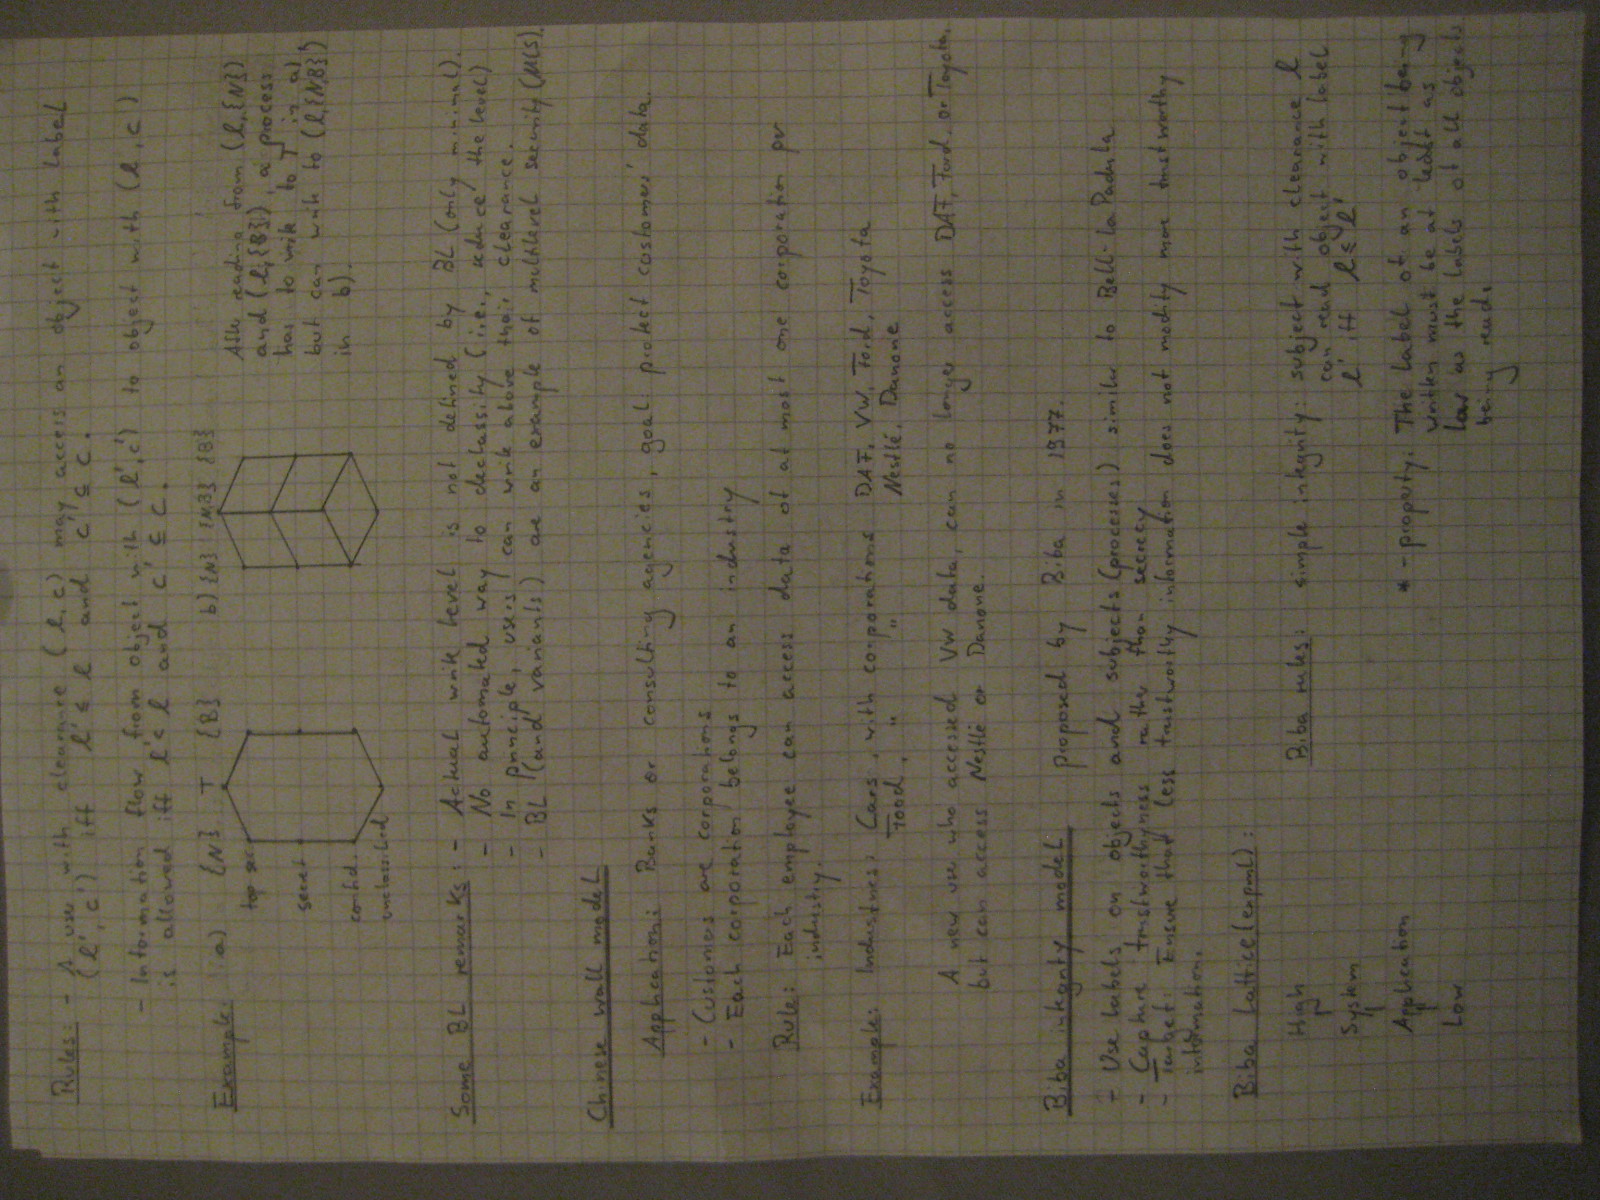 Rules: - A user with clearance (l, c) may access an object with label
(l', c') iff l' ≤ l and c' ⊆ c.
- Information flow from object with (l', c') to object with (l, c)
is allowed iff l' ≤ l and c' ⊆ c.
Example: a) {N} T {B} b) {N} {N,B} {B}
top sec.
secret
confid.
unclassified
After reading from (l,{N})
and (l,{B}), a process
has to write to T in a)
but can write to (l,{N,B})
in b).
Some BL remarks: - Actual write level is not defined by BL (only minimal).
- No automated way to declassify (i.e., reduce the level)
- In principle, users can write above their clearance.
- BL (and variants) are an example of multilevel security (MLS).
Chinese wall model
Application: Banks or consulting agencies, goal protect costomers' data.
- Customers are corporations
- Each corporation belongs to an industry
Rule: Each employee can access data of at most one corporation per
industry.
Example: Industries: Cars, with corporations DAF, VW, Ford, Toyota
Food, " " Nestlé, Danone
A new user who accessed VW data, can no longer access DAF, Ford, or Toyota,
but can access Nestlé or Danone.
Biba integrity model proposed by Biba in 1977.
- Use labels on objects and subjects (processes) similar to Bell-LaPadula
- Capture trustworthyness rather than secrecy
- Target: Ensure that less trustworthy information does not modify more trustworthy
information.
Biba Lattice (expml):
High
System
Application
Low
Biba rules: simple integrity: subject with clearance l
can read object with label
l' iff l ≤ l'
* - property: The label of an object being
written must be at least as
low as the labels of all objects
being read.